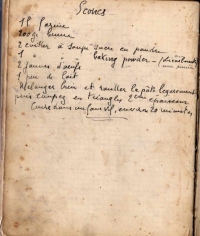 Scones
1 lb farine
200 gr beurre
2 cuiller à soupe sucre en poudre
1 " " baking powder
2 jaunes d'oeufs
1 peu de lait
Mélanger bien et rouller la pâte légèrement
puis coupez en triangles 2 cm épaisseur
Cuire dans un four vif, environ 20 minutes